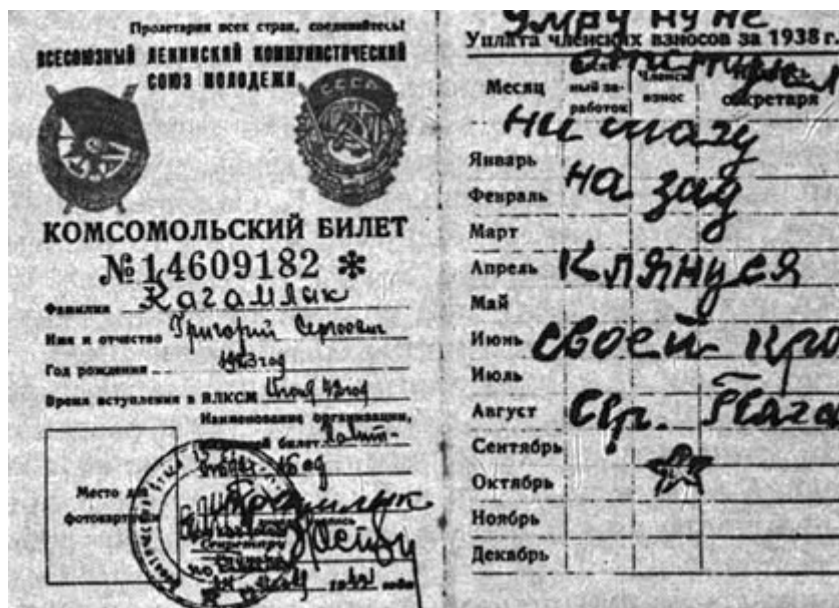 Пролетарии всех стран, соединяйтесь!
ВСЕСОЮЗНЫЙ ЛЕНИНСКИЙ КОММУНИСТИЧЕСКИЙ
СОЮЗ МОЛОДЕЖИ
СССР
КОМСОМОЛЬСКИЙ БИЛЕТ
№ 14609182 *
Фамилия Кагамлык
Имя и отчество Григорий Сергеевич
Год рождения 1923 год
Время вступления в ВЛКСМ 43 год
Наименование организации,
билет
Место для
фотокарточки
умру ну не
Уплата членских взносов за 1938 г.
Месяц
ный за-
работок
Членск.
взнос
секретаря
ни шагу
Январь
на зад
Февраль
Март
Апрель
Клянуся
Май
Июнь
своей кро
Июль
Август
Сентябрь
Октябрь
Ноябрь
Декабрь